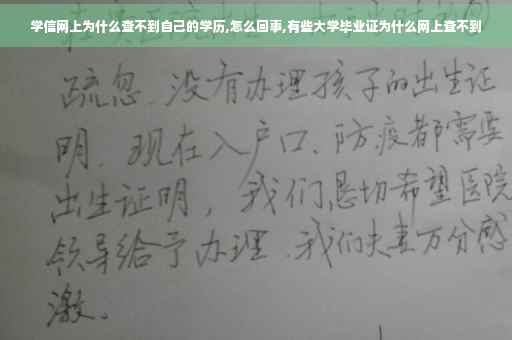 学信网上为什么查不到自己的学历,怎么回事,有些大学毕业证为什么网上查不到
疏忽、没有办理孩子的出生证
明、现在入户口、防疫都需要
出生证明，我们恳切希望医院
领导给予办理、我们夫妻万分感
激。